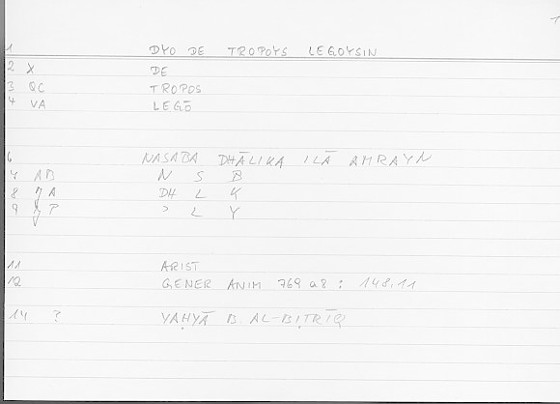 1
1 DYO DE TROPOYS LEGOYSIN
2 X DE
3 QC TROPOS
4 VA LEGŌ
6 NASABA DHĀLIKA ILĀ AMRAYN
7 AB N S B
8 A DH L K
9 P > L Y
11 ARIST
12 GENER ANIM 769 a8 : 148,11
14 ? YAḤYĀ B. AL-BIṬRĪQ